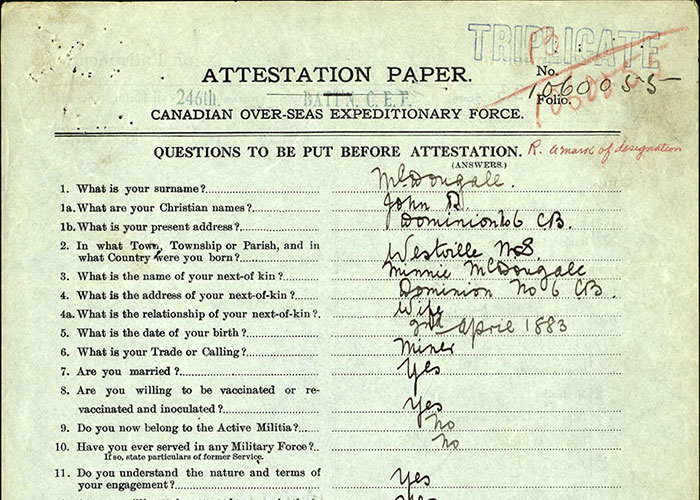 TRIPLICATE
ATTESTATION PAPER.
No. 1060055
Folio.
246th. BATT'N. C.E.F.
CANADIAN OVER-SEAS EXPEDITIONARY FORCE.
QUESTIONS TO BE PUT BEFORE ATTESTATION. R. a mark of designation
(ANSWERS.)
1. What is your surname? McDougale.
1a. What are your Christian names? John R
1b. What is your present address? Dominion No 6 CB.
2. In what Town, Township or Parish, and in
what Country were you born? Westville NS.
3. What is the name of your next-of kin? Minnie McDougale
4. What is the address of your next-of-kin? Dominion No 6 CB.
4a. What is the relationship of your next-of-kin? Wife
5. What is the date of your birth? 2nd April 1883
6. What is your Trade or Calling? Miner
7. Are you married? Yes
8. Are you willing to be vaccinated or re-
vaccinated and inoculated? Yes
9. Do you now belong to the Active Militia? No
10. Have you ever served in any Military Force? No
If so, state particulars of former Service.
11. Do you understand the nature and terms of
your engagement? Yes